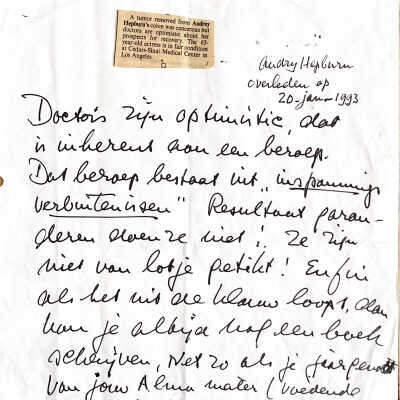 A tumor removed from Audrey
Hepburn's colon was cancerous but
doctors are optimistic about her
prospects for recovery. The 63-
year-old actress is in fair condition
at Cedars-Sinai Medical Center in
Los Angeles.
Audry Hepburn
overleden op
20-jan-1993
Doctors zijn optimistic, dat
is inherent aan een beroep.
Dat beroep bestaat uit "inspannings
verbintenissen" Resultaat garan-
deren doen ze niet! Ze zijn
niet van lotje getikt! Enfin
als het uit de klauw loopt, dan
kun je altijd nog een boek
schrijven, Net zo als je jaargenoot
van jouw Alma mater (voedende